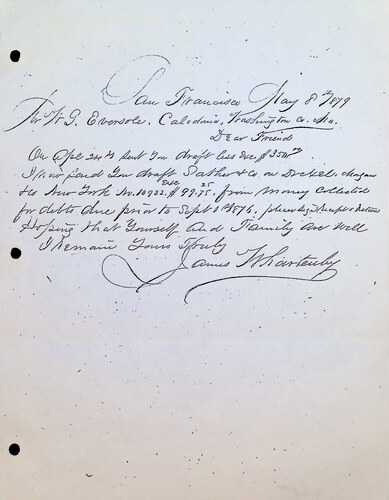 San Francisco May 8th 1879
W. G. Eversole. Caledonia, Washington Co. Mo.
Dear Friend
On Apl 24th sent you draft less Exc $35
I now send you draft Sather & Co on Drexel Morgan
& Co New York No. 10932. Exc $99.75 from money collected
for debts due prior to Sept 1st 1876. please sign Receipt & Return
Hoping that Yourself and Family are well
I Remain Yours Truly
James Whartenby